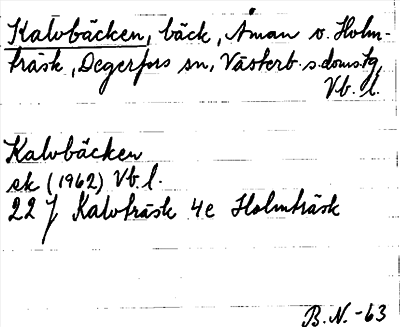 Kalvbäcken, bäck, Åman v. Holm-
träsk, Degerfors sn, Västerb. s. doms.tg,
Vb. l.
Kalvbäcken
ek (1962) Vb. l.
22 J Kalvträsk 4e Holmträsk
B.N. -63